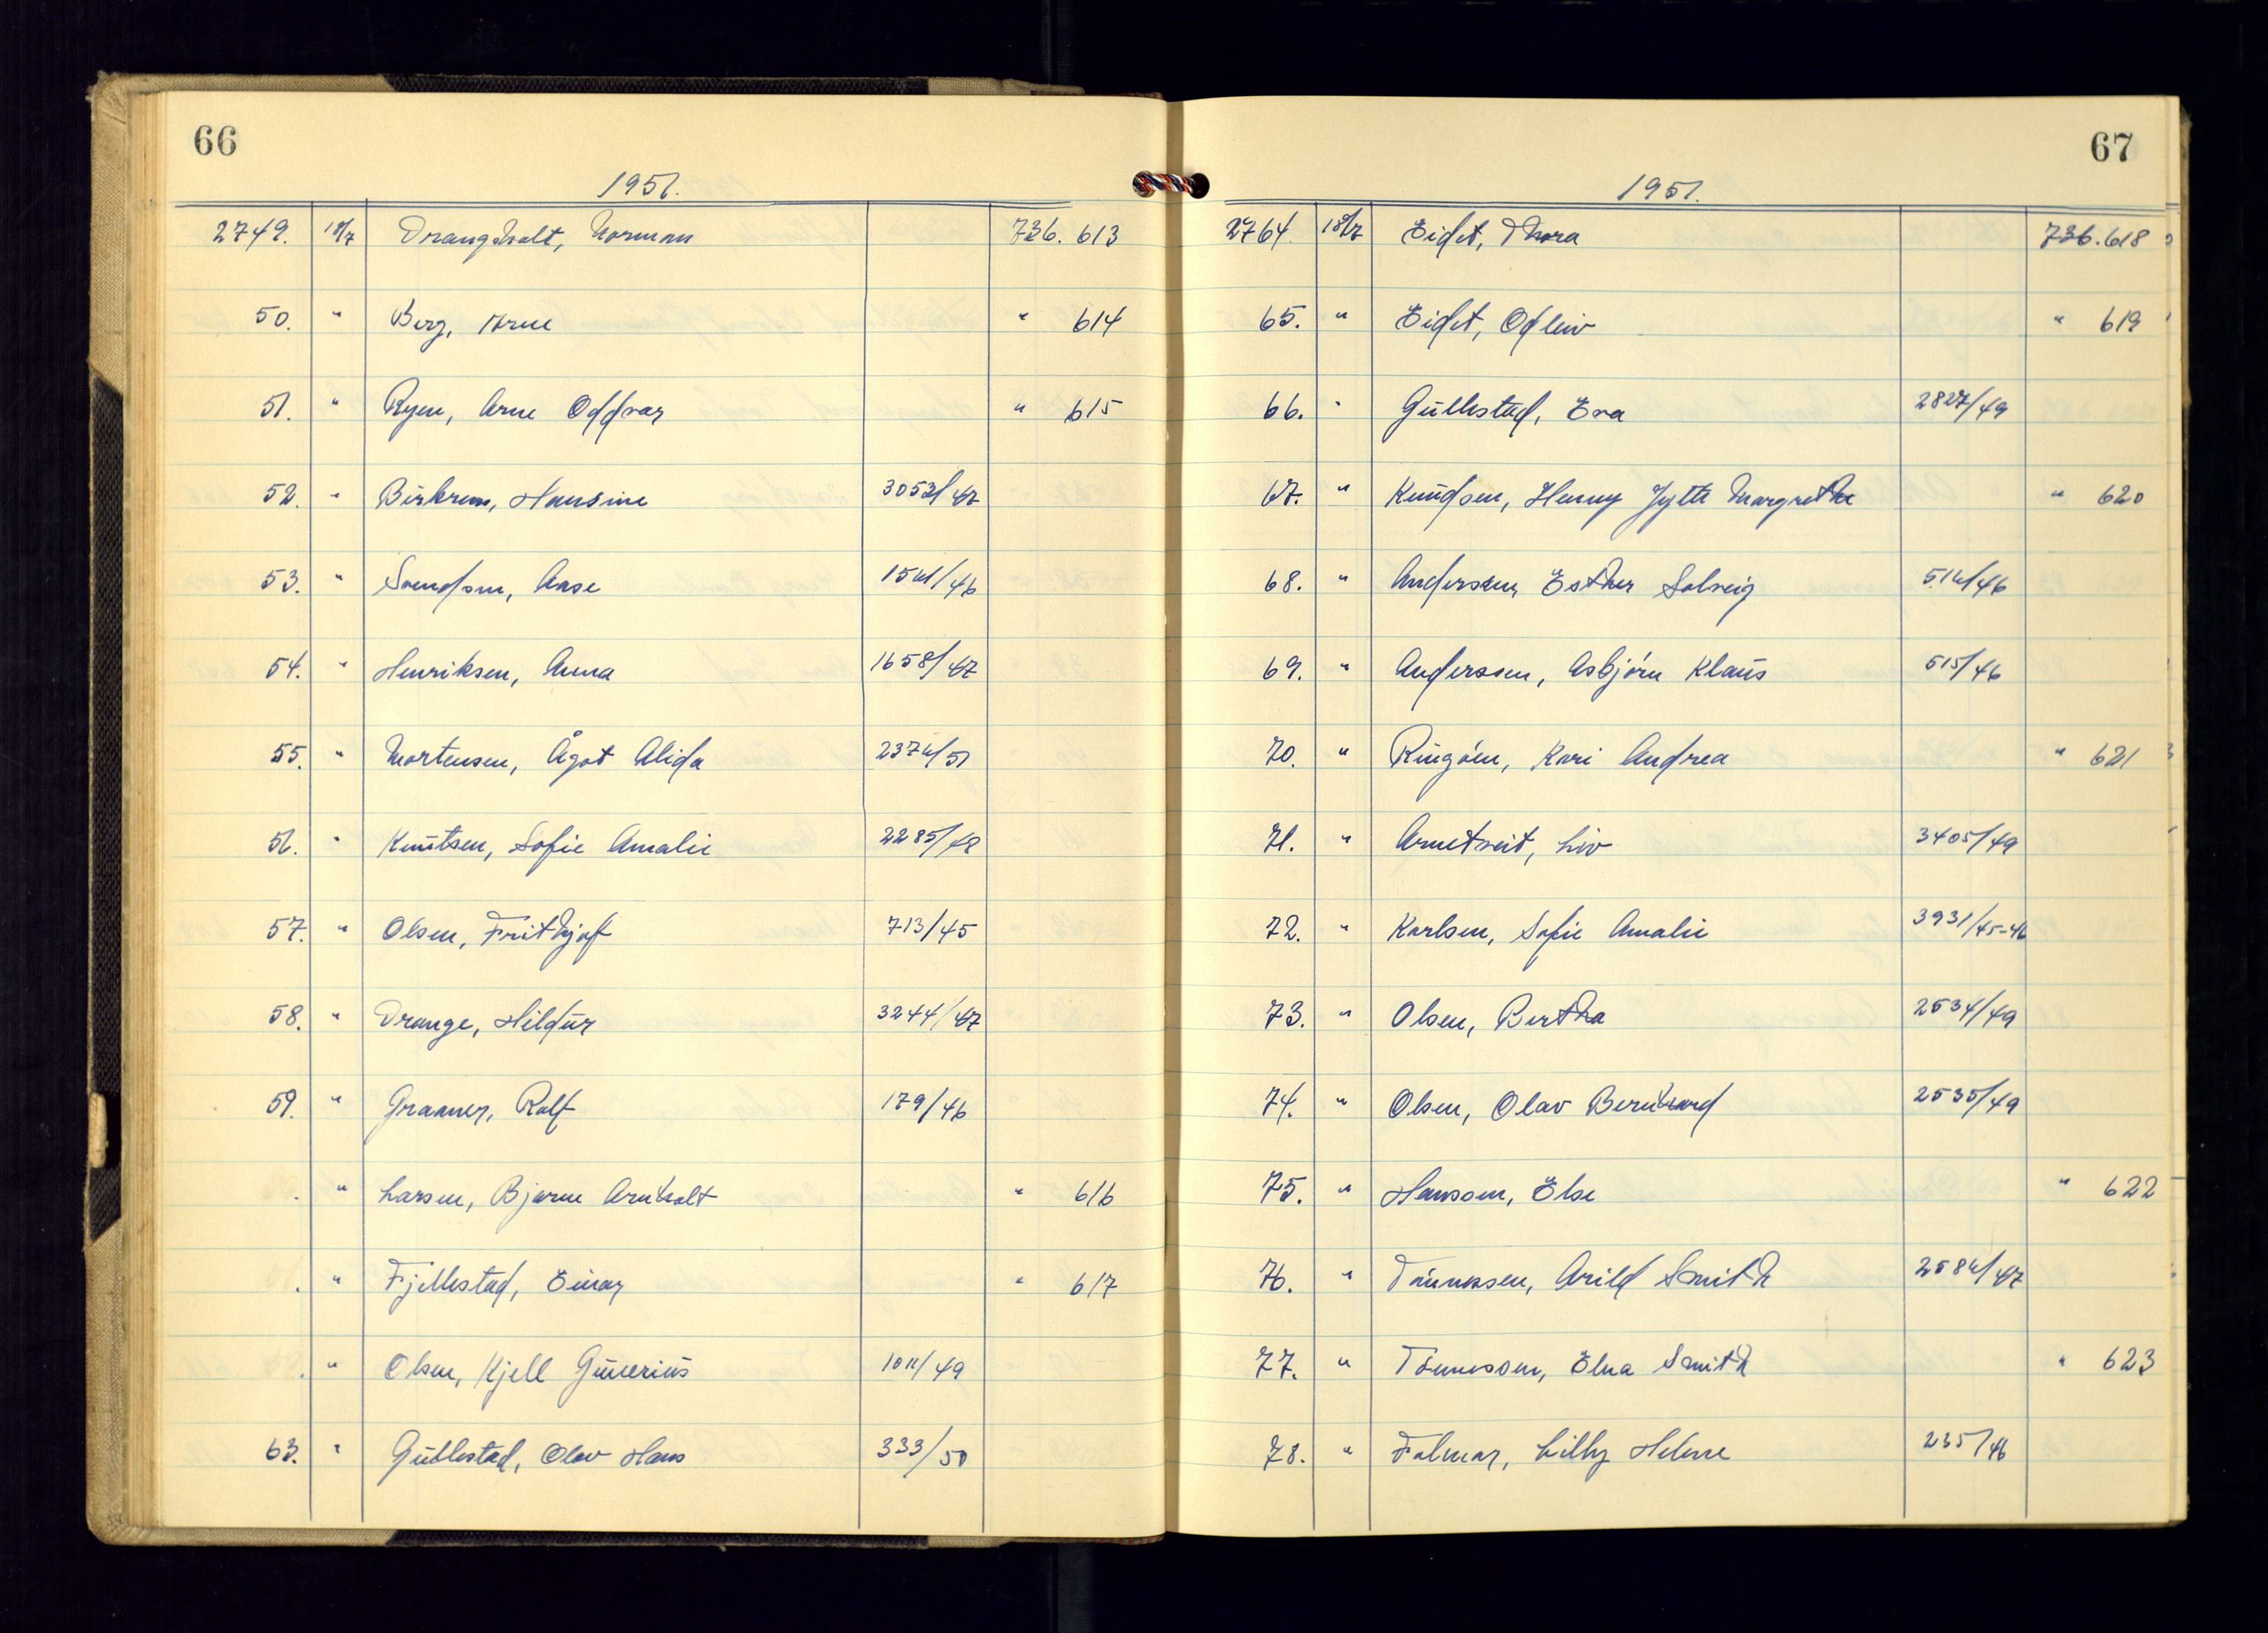 66
1951.
2749. 18/7 Drangsholt, Norman 736. 613
50. " Berg, Arne " 614
51. " Ryen, Arne Oddvar " 615
52. " Birkrem, Hansine 3053/47
53. " Svendsen, Aase 1541/46
54. " Henriksen, Anna 1658/47
55. " Mortensen, Ågot Alida 2374/51
56. " Knutsen, Sofie Amalie 2285/48
57. " Olsen, Frithjof 713/45
58. " Drange, Hildur 3244/47
59. " Graaner, Rolf 179/46
. " Larsen, Bjarne Arnholt " 616
. " Fjellestad, Einar " 617
. " Olsen, Kjell Gunerius 1011/49
63. " Gullestad, Olav Hans 333/50
67
1951.
2764. 18/7 Eidet, Thora 736. 618
65. " Eidet, Odleiv " 619
66. " Gullestad, Eva 2827/49
67. " Knudsen, Henny Jytte Margrethe " 620
68. " Anderssen, Esther Solveig 514/46
69. " Anderssen, Asbjörn Klaus 515/46
70. " Ringöen, Kari Andrea " 621
71. " Arnetveit, Liv 3405/49
72. " Karlsen, Sofie Amalie 3931/45-46
73. " Olsen, Bertha 2534/49
74. " Olsen, Olav Bernhard 2535/49
75. " Hansson, Else " 622
76. " Tönnessen, Arild Smith 2584/47
77. " Tönnessen, Elna Smith " 623
78. " Falmar, Lilly Helene 235/46